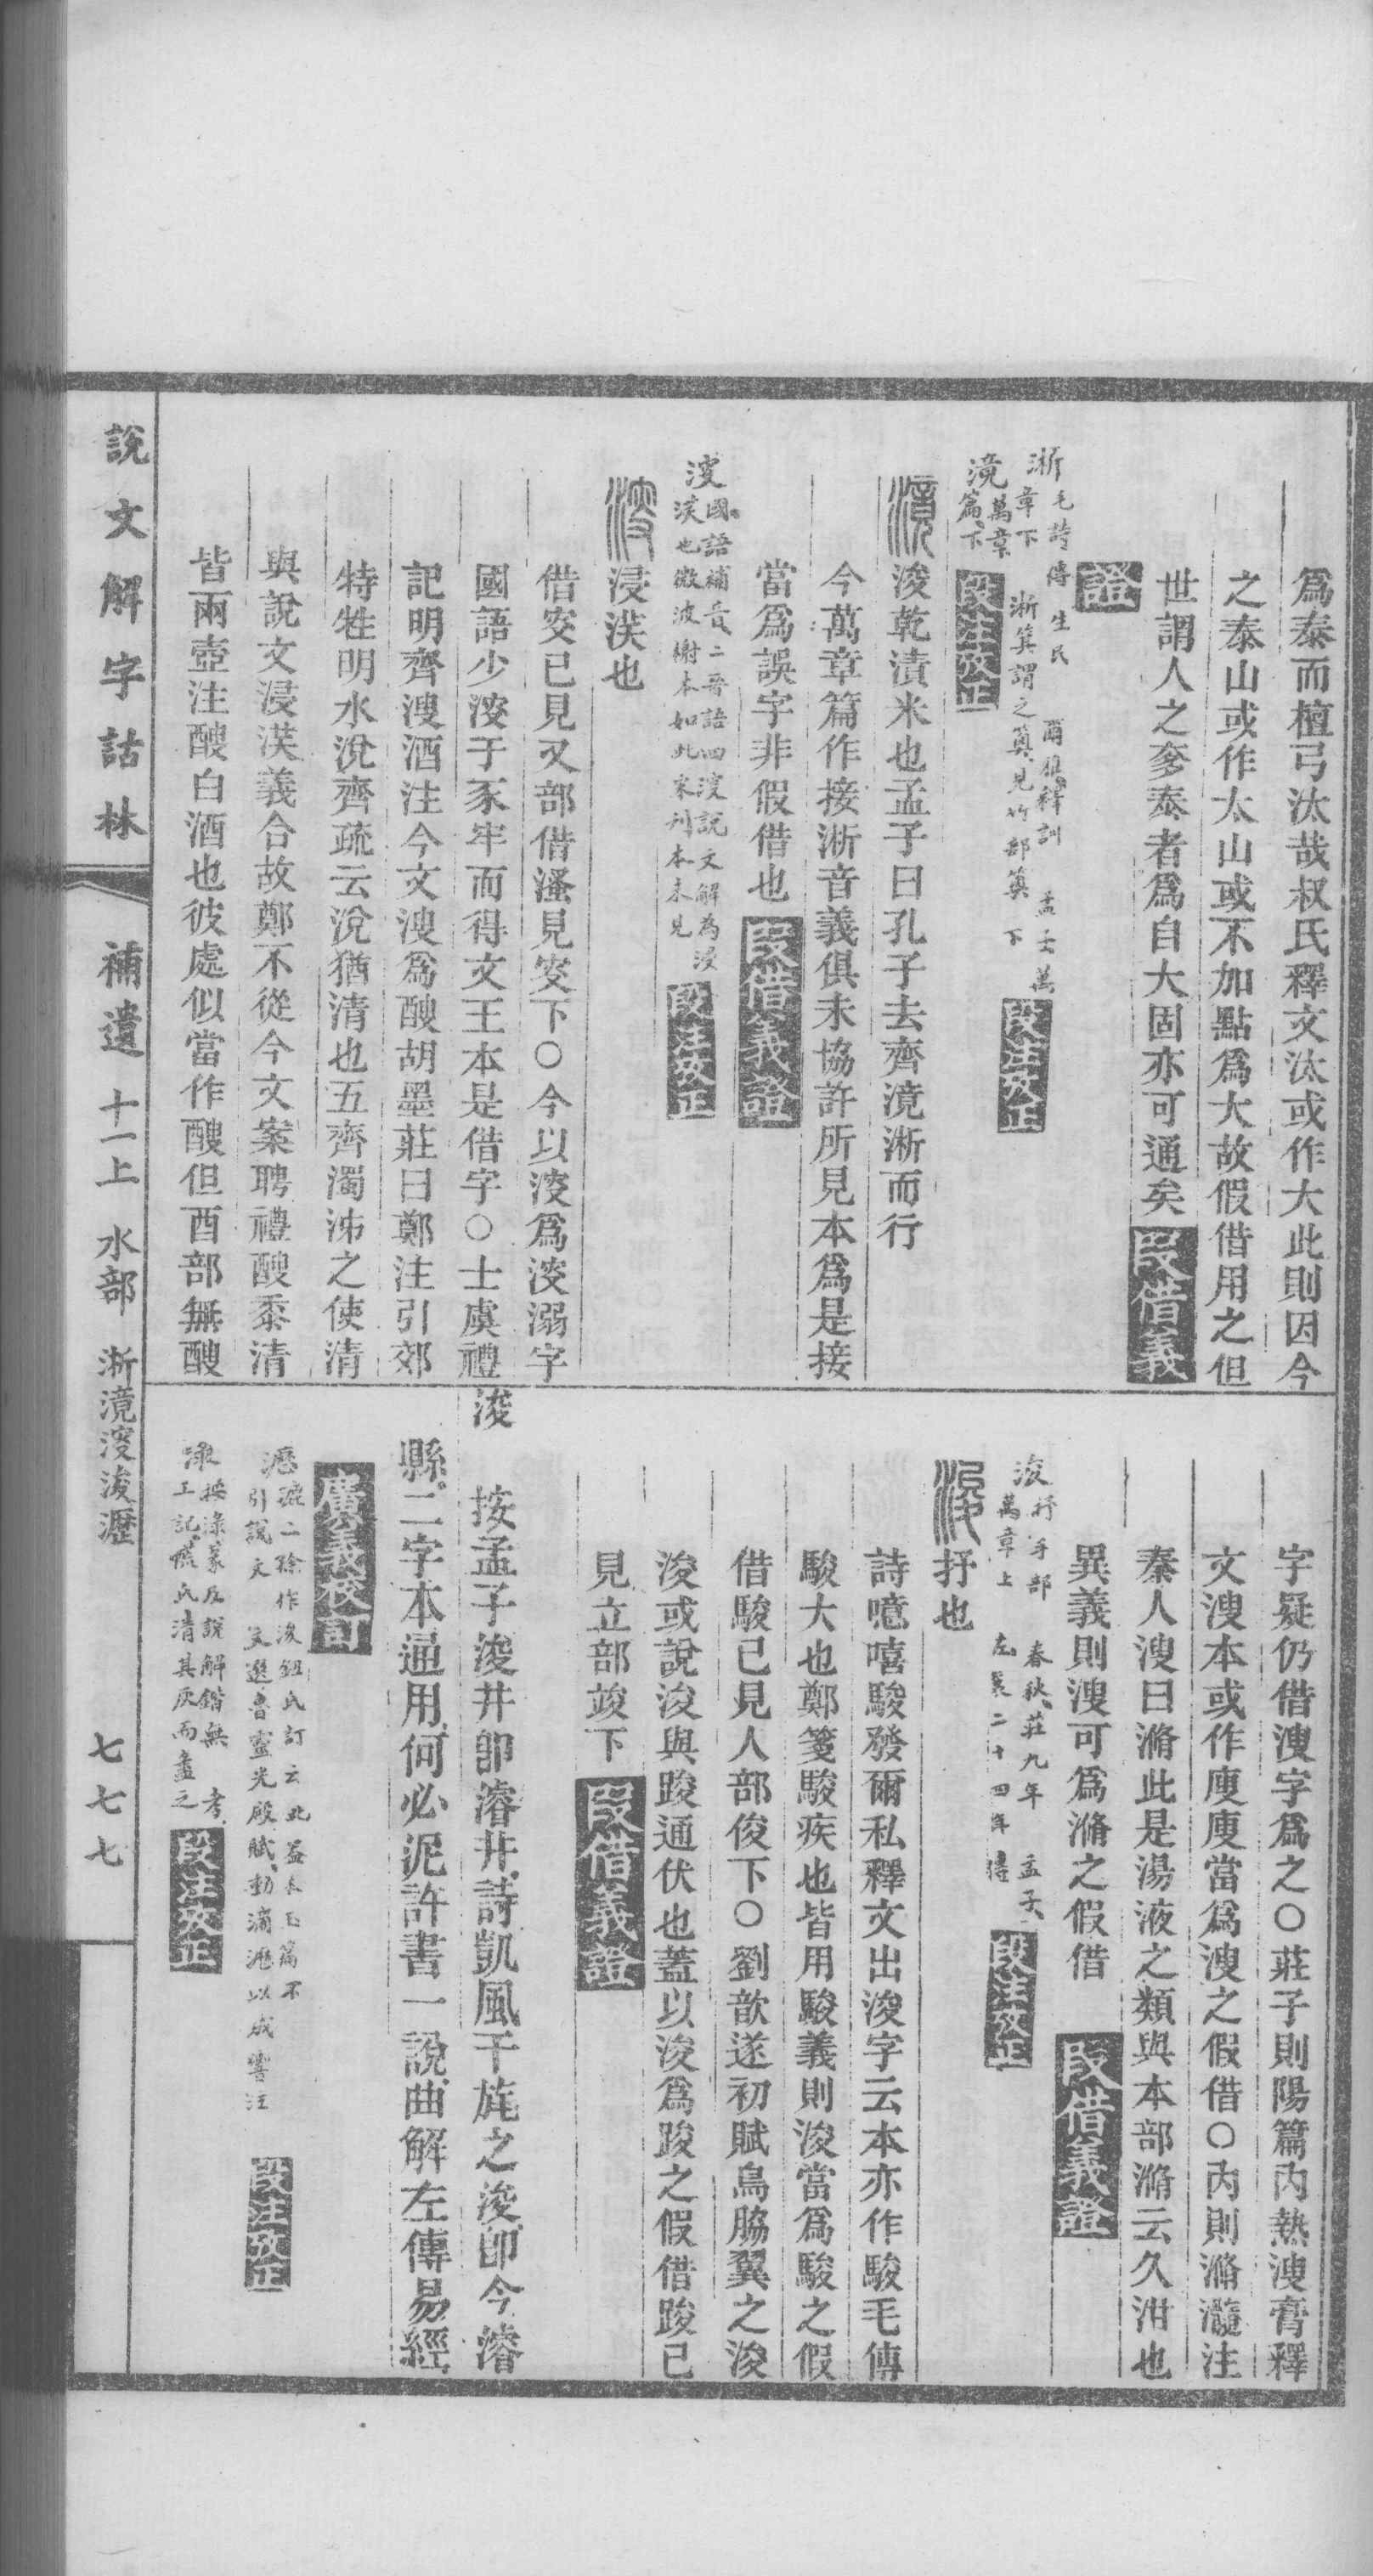 爲泰而檀弓汰哉叔氏釋文汰或作大此則因今
之泰山或作太山或不加點爲大故假借用之但
世謂人之奓泰者爲自大固亦可通矣 叚借義
證
淅 毛詩傳 生民 爾雅釋訓 孟子萬
章下 淅箕謂之䉛見竹部䉛下 段注攷正
滰 萬章
篇下 段注攷正
滰 浚乾漬米也孟子曰孔子去齊滰淅而行
今萬章篇作接淅音義俱未協許所見本爲是接
當爲誤字非假借也 叚借義證
浽 國語補音二晉語四浽說文解為浸
㳶也微波榭本如此宋刊本未見 段注攷正
浽 浸㳶也
借叜已見又部借溞見叜下○今以浽爲浽溺字
國語少浽于豕牢而得文王本是借字○士虞禮
記明齊溲酒注今文溲爲醙胡墨莊曰鄭注引郊
特牲明水涗齊疏云涗猶清也五齊濁泲之使清
與說文浸㳶義合故鄭不從今文案聘禮醙黍清
皆兩壺注醙白酒也彼處似當作醙但酉部無醙
字疑仍借溲字爲之○莊子則陽篇內熱溲膏釋
文溲本或作廋廋當爲溲之假借○內則滫瀡注
秦人溲曰滫此是湯液之類與本部滫云久泔也
異義則溲可爲滫之假借 叚借義證
浚 抒手部 春秋莊九年 孟子
萬章上 左襄二十四年傳 段注攷正
浚 抒也
詩噫嘻駿發爾私釋文出浚字云本亦作駿毛傳
駿大也鄭箋駿疾也皆用駿義則浚當爲駿之假
借駿已見人部俊下○劉歆遂初賦鳥脇翼之浚
浚或說浚與踆通伏也蓋以浚爲踆之假借踆已
見立部竣下 叚借義證
浚 按孟子浚井卽濬井詩凱風干旄之浚卽今濬
縣二字本通用何必泥許書一說曲解左傳易經
廣義校訂
瀝 漉二徐作浚鈕氏訂云此蓋本玉篇不
引說文 文選魯靈光殿賦動滴瀝以成響注 段注攷正
淥 按淥篆及說解鍇無 考
工記㡛氏清其灰而盝之 段注攷正
說文解字詁林 補遺 十一上 水部 淅滰浽浚瀝 七七七